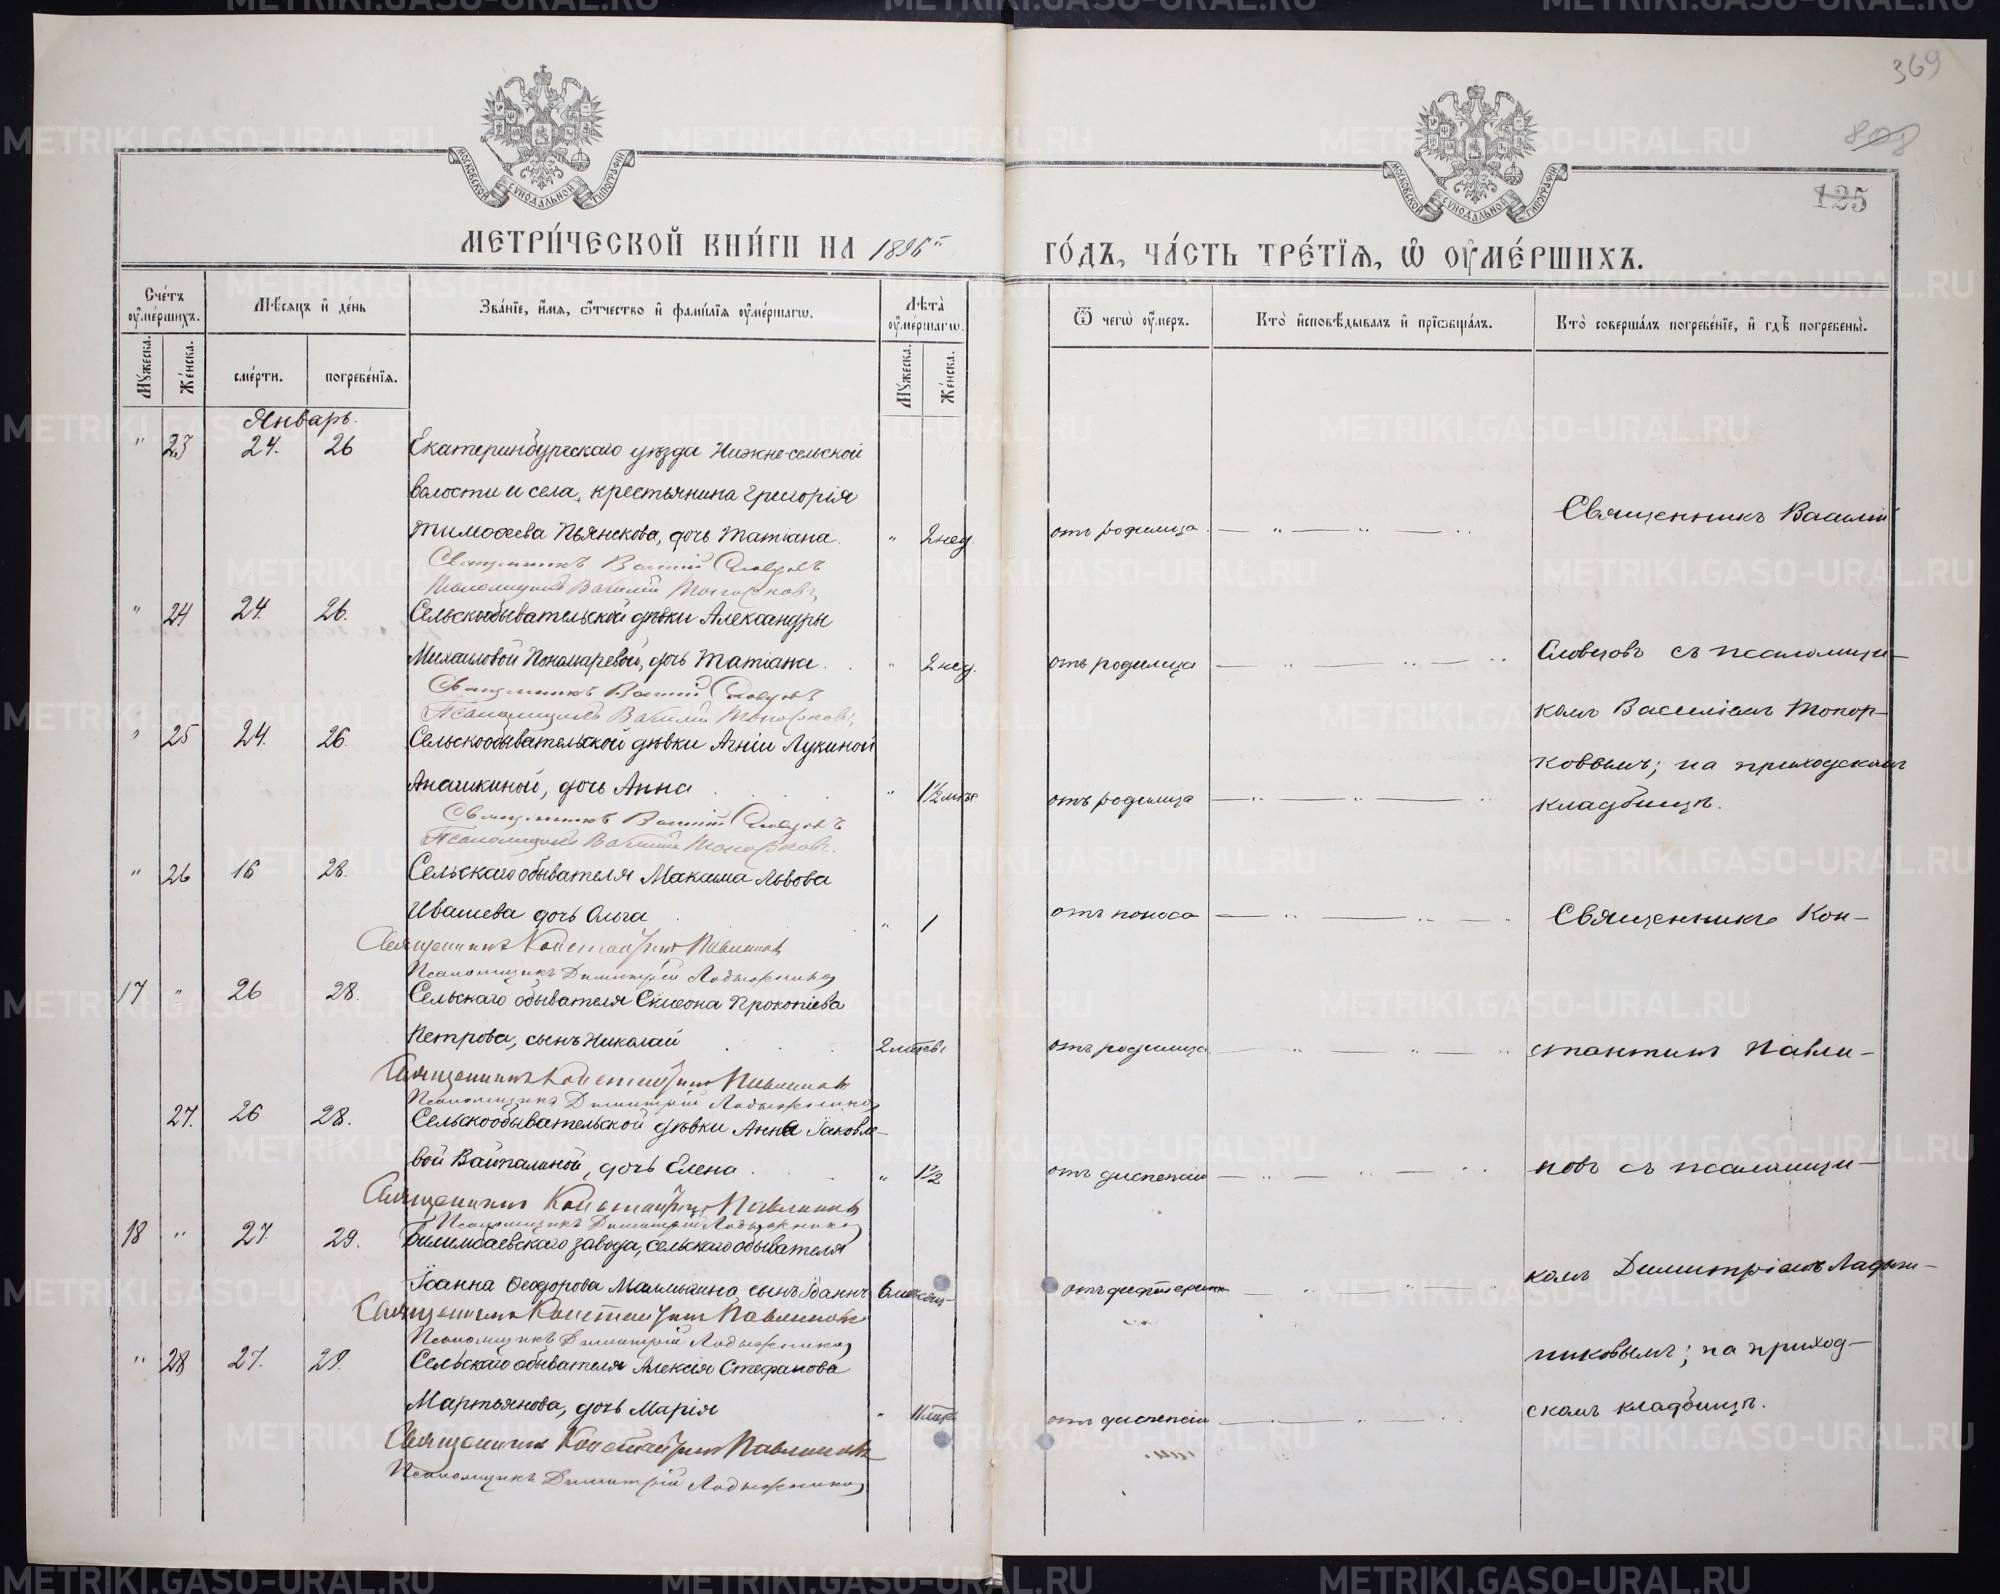 369
808
125
МОСКОВСКОЙ СѴНОДАЛЬНОЙ ТИПОГРАФІИ
МОСКОВСКОЙ СѴНОДАЛЬНОЙ ТИПОГРАФІИ
МЕТРИ́ЧЕСКОЙ КНИ́ГИ НА 1896 ГО́ДЪ, ЧА́СТЬ ТРЕ́ТЇѦ, Ѡ҆ ОУ҆МЕ́РШИХЪ.
Сче́тъ оу҆ме́ршихъ.
Мꙋ́жеска.
Же́нска.
Мѣ́сѧцъ и҆ де́нь
сме́рти.
погребе́нїѧ.
Зва́нїе, и҆́мѧ, ѻ҆́тчество и҆ фами́лїѧ оу҆ме́ршагѡ.
Лѣ́та оу҆ме́ршагѡ.
Мꙋ́жеска.
Же́нска.
Ѿ чегѡ̀ оу҆́меръ.
Кто̀ и҆сповѣ́дывалъ и҆ прїѡбща́лъ.
Кто̀ соверша́лъ погребе́нїе, и҆ гдѣ̀ погребены̀.
Январь.
" 23 24. 26 Екатеринбургскаго уѣзда Нижне-сельской
волости и села, крестьянина Григорія
Тимофеева Пьянкова, дочь Татіана. " 2 нед. отъ родимца — " — " — " Священникъ Василій
Священникъ Василій Словцовъ
Псаломщикъ Василій Топорковъ
" 24 24. 26. Сельскообывательской дѣвки Александры
Михаиловой Пономаревой, дочь Татіана. " 2 нед. отъ родимца — " — " — " Словцовъ съ псаломщи-
Священникъ Василій Словцовъ
Псаломщикъ Василій Топорковъ
комъ Василіемъ Топор-
" 25 24. 26 Сельскообывательской дѣвки Агніи Лукиной
ковымъ; на приходскомъ
Анашкиной, дочь Анна " 1½ мѣс. отъ родимца — " — " — " кладбищѣ.
Священникъ Василій Словцовъ
Псаломщикъ Василій Топорковъ
" 26 16 28. Сельскаго обывателя Максима Львова
Ивашева дочь Ольга " 1 отъ поноса — " — " — " Священникъ Кон-
Священникъ Константинъ Павлиновъ
Псаломщикъ Димитрій Ладыжниковъ
17 " 26 28. Сельскаго обывателя Симеона Прокопіева
Петрова, сынъ Николай 2 мѣсяц. отъ родимца — " — " — " стантинъ Павли-
Священникъ Константинъ Павлиновъ
Псаломщикъ Димитрій Ладыжниковъ
27. 26 28. Сельскообывательской дѣвки Анны Іаковле-
вой Вайталиной, дочь Елена " 1½ отъ диспепсіи — " — " — " новъ съ псаломщи-
Священникъ Константинъ Павлиновъ
Псаломщикъ Димитрій Ладыжниковъ
18 " 27. 29. Билимбаевскаго завода, сельскаго обывателя
Іоанна Феодорова Малмыгина, сынъ Іоаннъ 6 мѣсяц. отъ дифтерита — " — " — " комъ Димитріемъ Ладыж-
Священникъ Константинъ Павлиновъ
Псаломщикъ Димитрій Ладыжниковъ
никовымъ; на приход-
" 28 27. 29. Сельскаго обывателя Алексія Стефанова
Мартьянова, дочь Марія " отъ диспепсіи — " — " — " скомъ кладбищѣ.
Священникъ Константинъ Павлиновъ
Псаломщикъ Димитрій Ладыжниковъ
METRIKI.GASO-URAL.RU